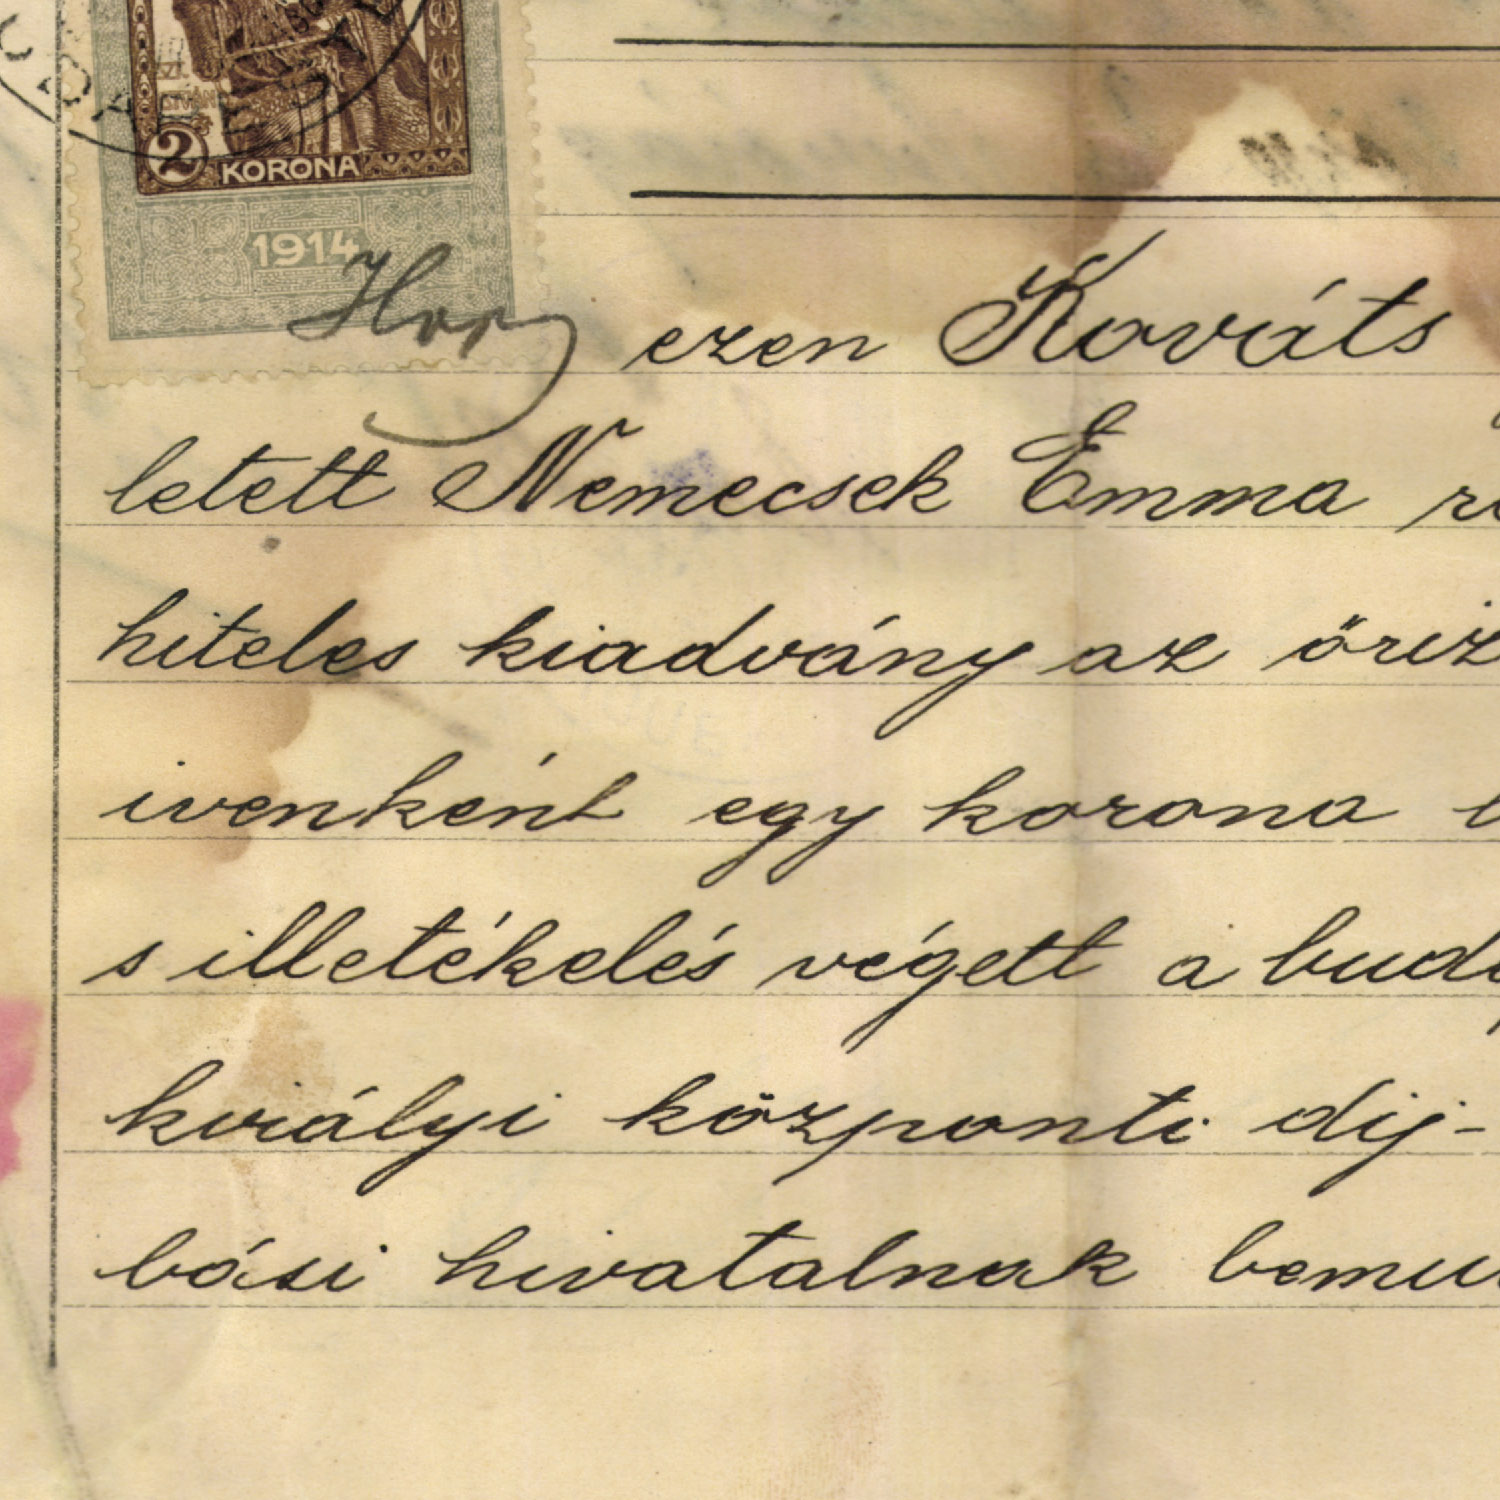 2 KORONA
1914
Hogy ezen Kováts
letett Nemecsek Emma
hiteles kiadvány az
ivenként egy korona
s illetékelés végett a
királyi központi dij-
bási hivatalnak